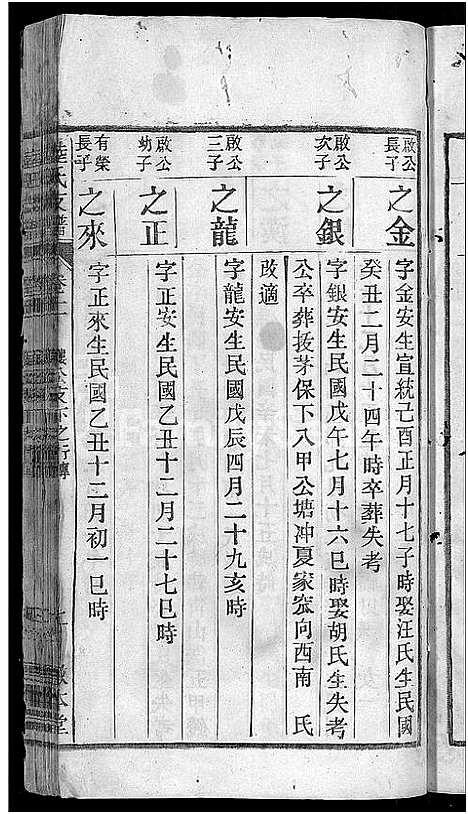 啟公長子
之金
字金安生宣統己酉正月十七子時娶汪氏生民國
癸丑二月二十四午時卒葬失考
啟公次子
之銀
字銀安生民國戊午七月十六巳時娶胡氏生失考
公卒葬拔茅保下八甲公塘冲夏家窊向西南 氏
改適
啟公三子
之龍
字龍安生民國戊辰四月二十九亥時
啟公幼子
之正
字正安生民國乙丑十二月二十七巳時
有榮長子
之來
字正來生民國乙丑十二月初一巳時
陸氏支譜
卷二